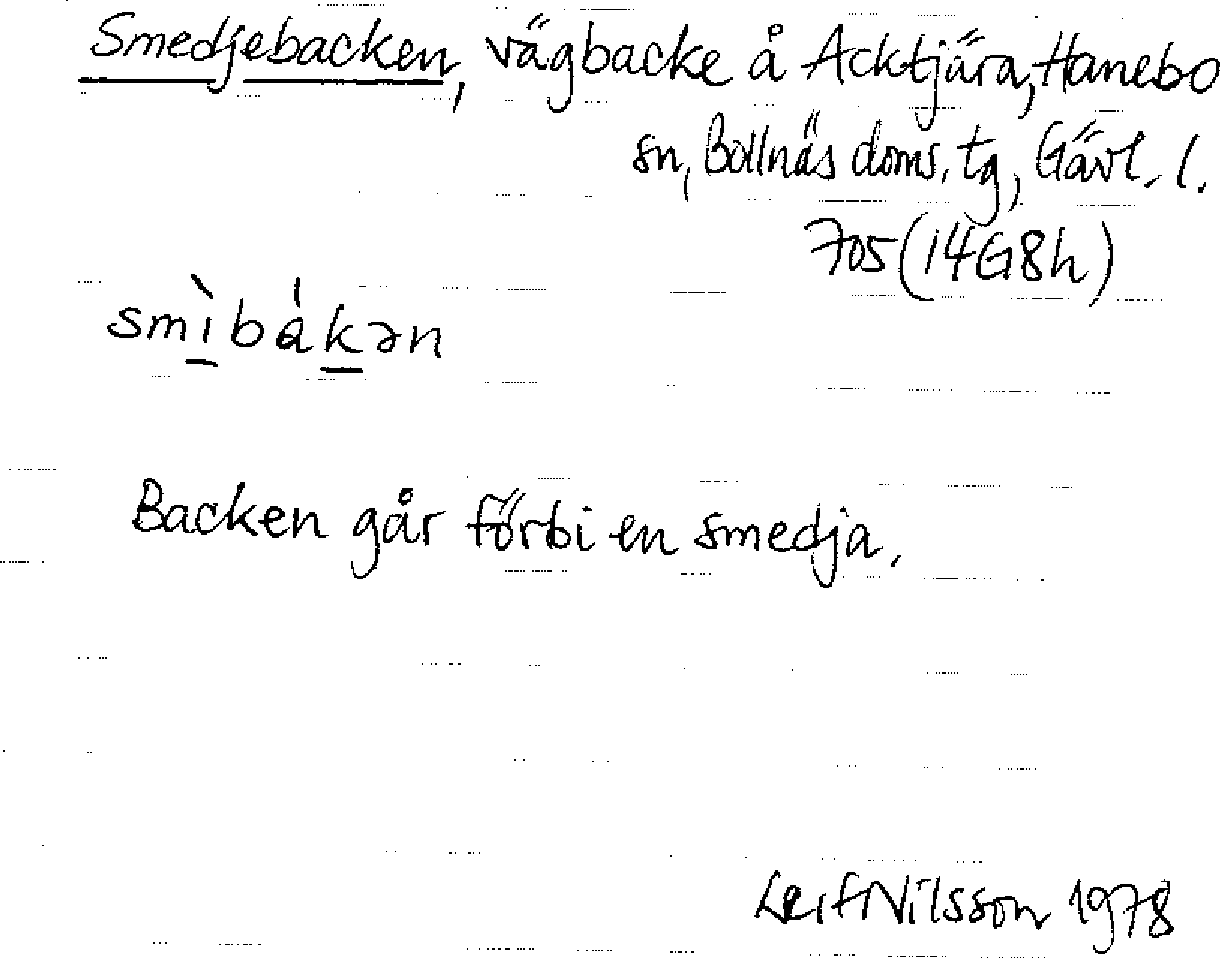 Smedjebacken, vägbacke å Acktjära, Hanebo
sn, Bollnäs doms. tg, Gävl. l.
705 (14G8h)
smìbákən
Backen går förbi en smedja.
Leif Nilsson 1978